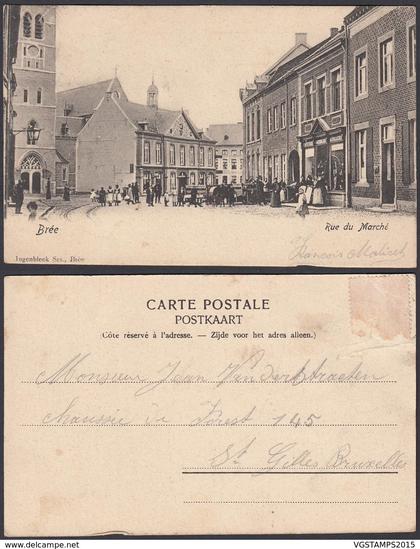 Brée
Rue du Marché
Ingenbleek Srs., Brée
François
CARTE POSTALE
POSTKAART
(Côte réservé à l'adresse. — Zijde voor het adres alleen.)
Monsieur Jean Vanderstraeten
Chaussée de Forest 145
St Gilles Bruxelles
VGSTAMPS2015